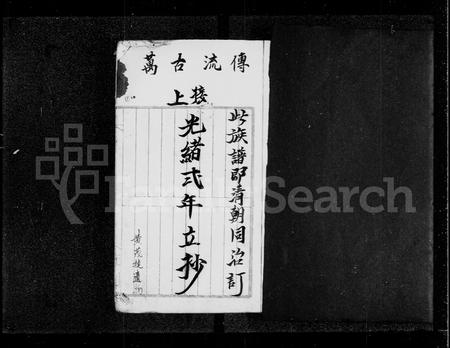 傳流古萬
接上
此族譜即清朝同治訂
光緒弍年立抄
黃茂枝
FamilySearch